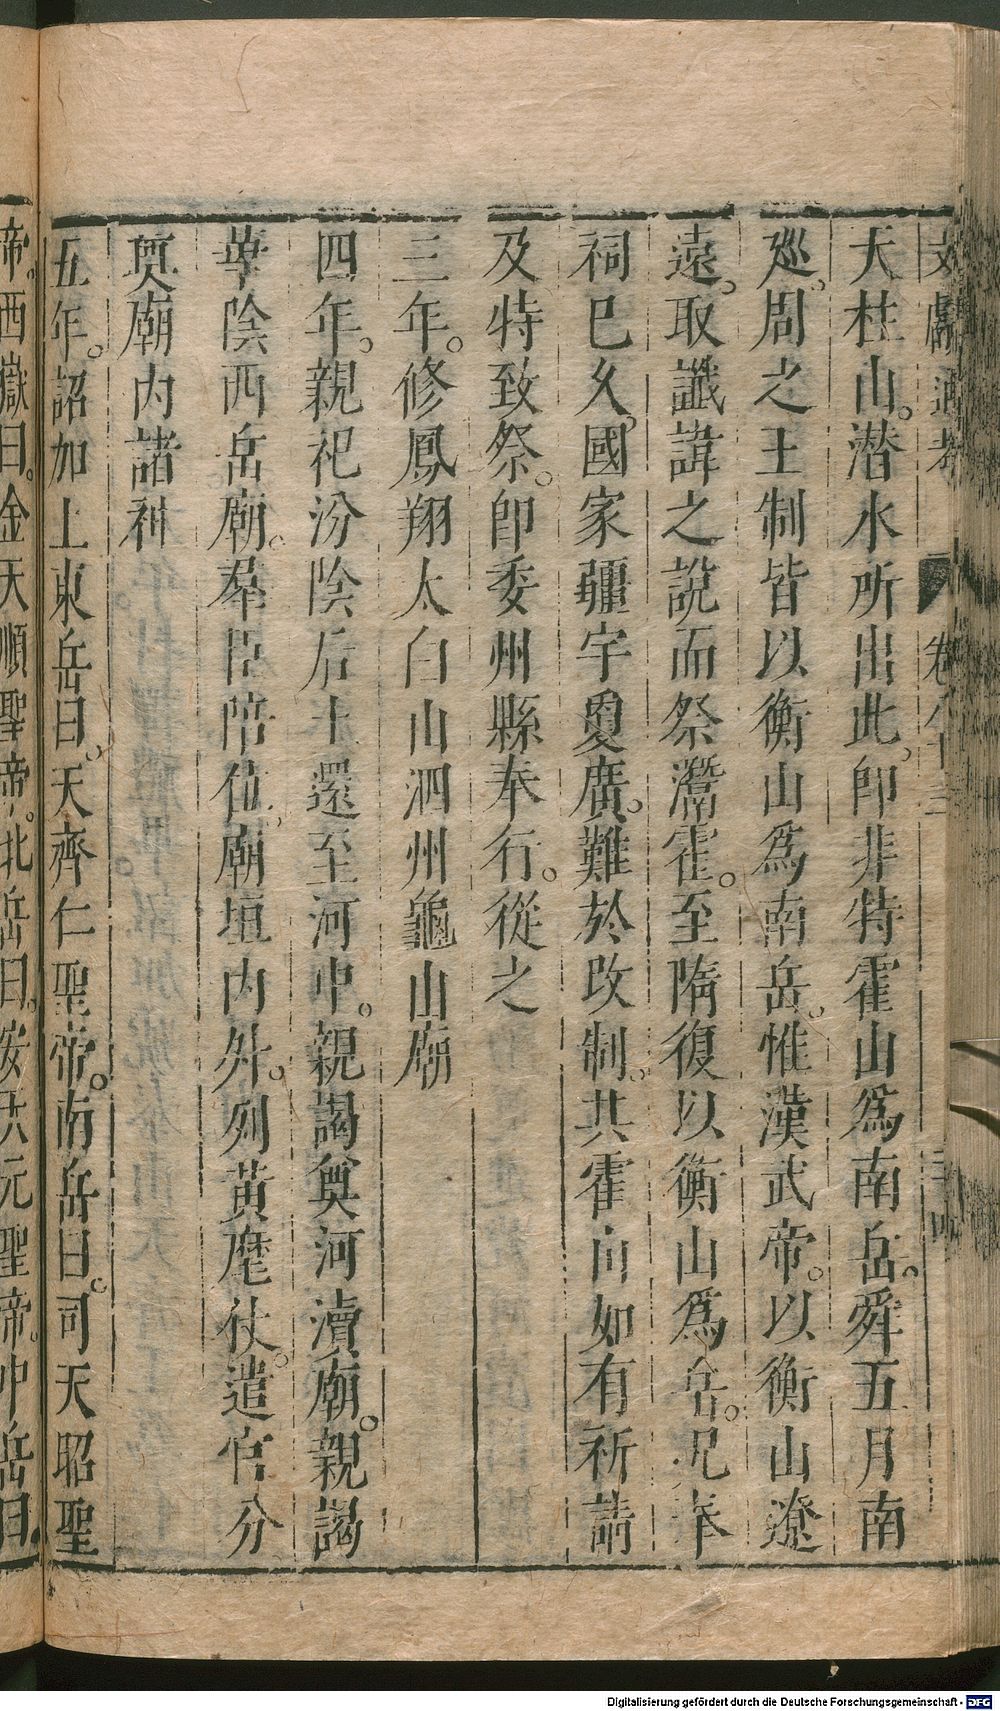 文獻通考 卷八十三
天柱山。潛水所出此。卽非特霍山爲南岳。舜五月南
廵。周之王制皆以衡山爲南岳。惟漢武帝。以衡山遼
遠。取讖諱之說而祭灊霍。至隋復以衡山爲岳。况奉
祠巳久。國家疆宇夐廣。難於改制。其霍山如有祈請
及特致祭。卽委州縣奉行。從之
三年。修鳳翔太白山泗州龜山廟
四年。親祀汾陰后土還至河中。親謁奠河瀆廟。親謁
華陰西岳廟。羣臣陪位。廟垣內外。列黃麾仗。遣官分
奠廟內諸神
五年。詔加上東岳曰。天齊仁聖帝。南岳曰。司天昭聖
帝。西嶽曰。金天順聖帝。北岳曰。安天元聖帝。中岳曰。
Digitalisierung gefördert durch die Deutsche Forschungsgemeinschaft - DFG